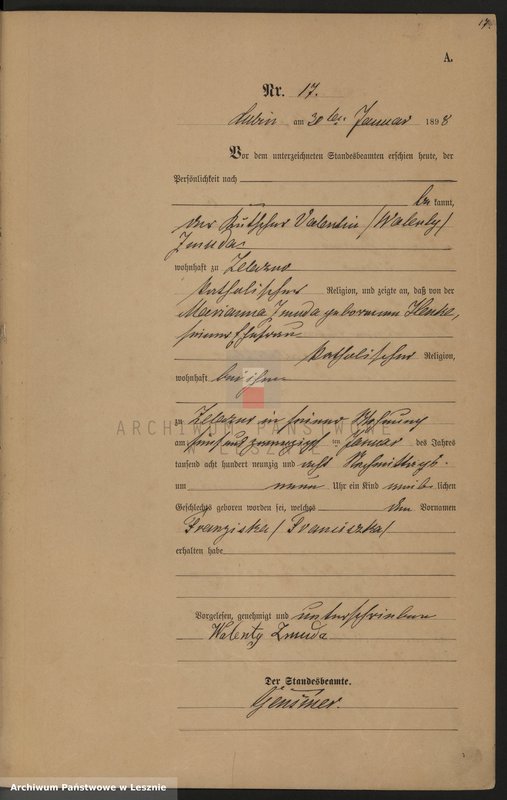 17.
A.
Nr. 17.
Lubin am 30ten Januar 1898
Vor dem unterzeichneten Standesbeamten erschien heute, der
Persönlichkeit nach
be kannt,
der Kutscher Valentin /Walenty/
Zmuda
wohnhaft zu Zelazno
katholischer Religion, und zeigte an, daß von der
Marianna Zmuda geborenen
seiner Ehefrau
katholischer Religion,
wohnhaft bei ihm
zu Zelazno in seiner Wohnung
am fünf und zwanzigsten Januar des Jahres
tausend acht hundert neunzig und acht Nachmittags
um neun Uhr ein Kind weib lichen
Geschlechts geboren worden sei, welches den Vornamen
Franziska /Franciszka/
erhalten habe
Vorgelesen, genehmigt und unterschrieben
Walenty Zmuda
Der Standesbeamte.
Gensmer.
ARCHIWUM PAŃSTWOWE
W LESZNIE
Archiwum Państwowe w Lesznie